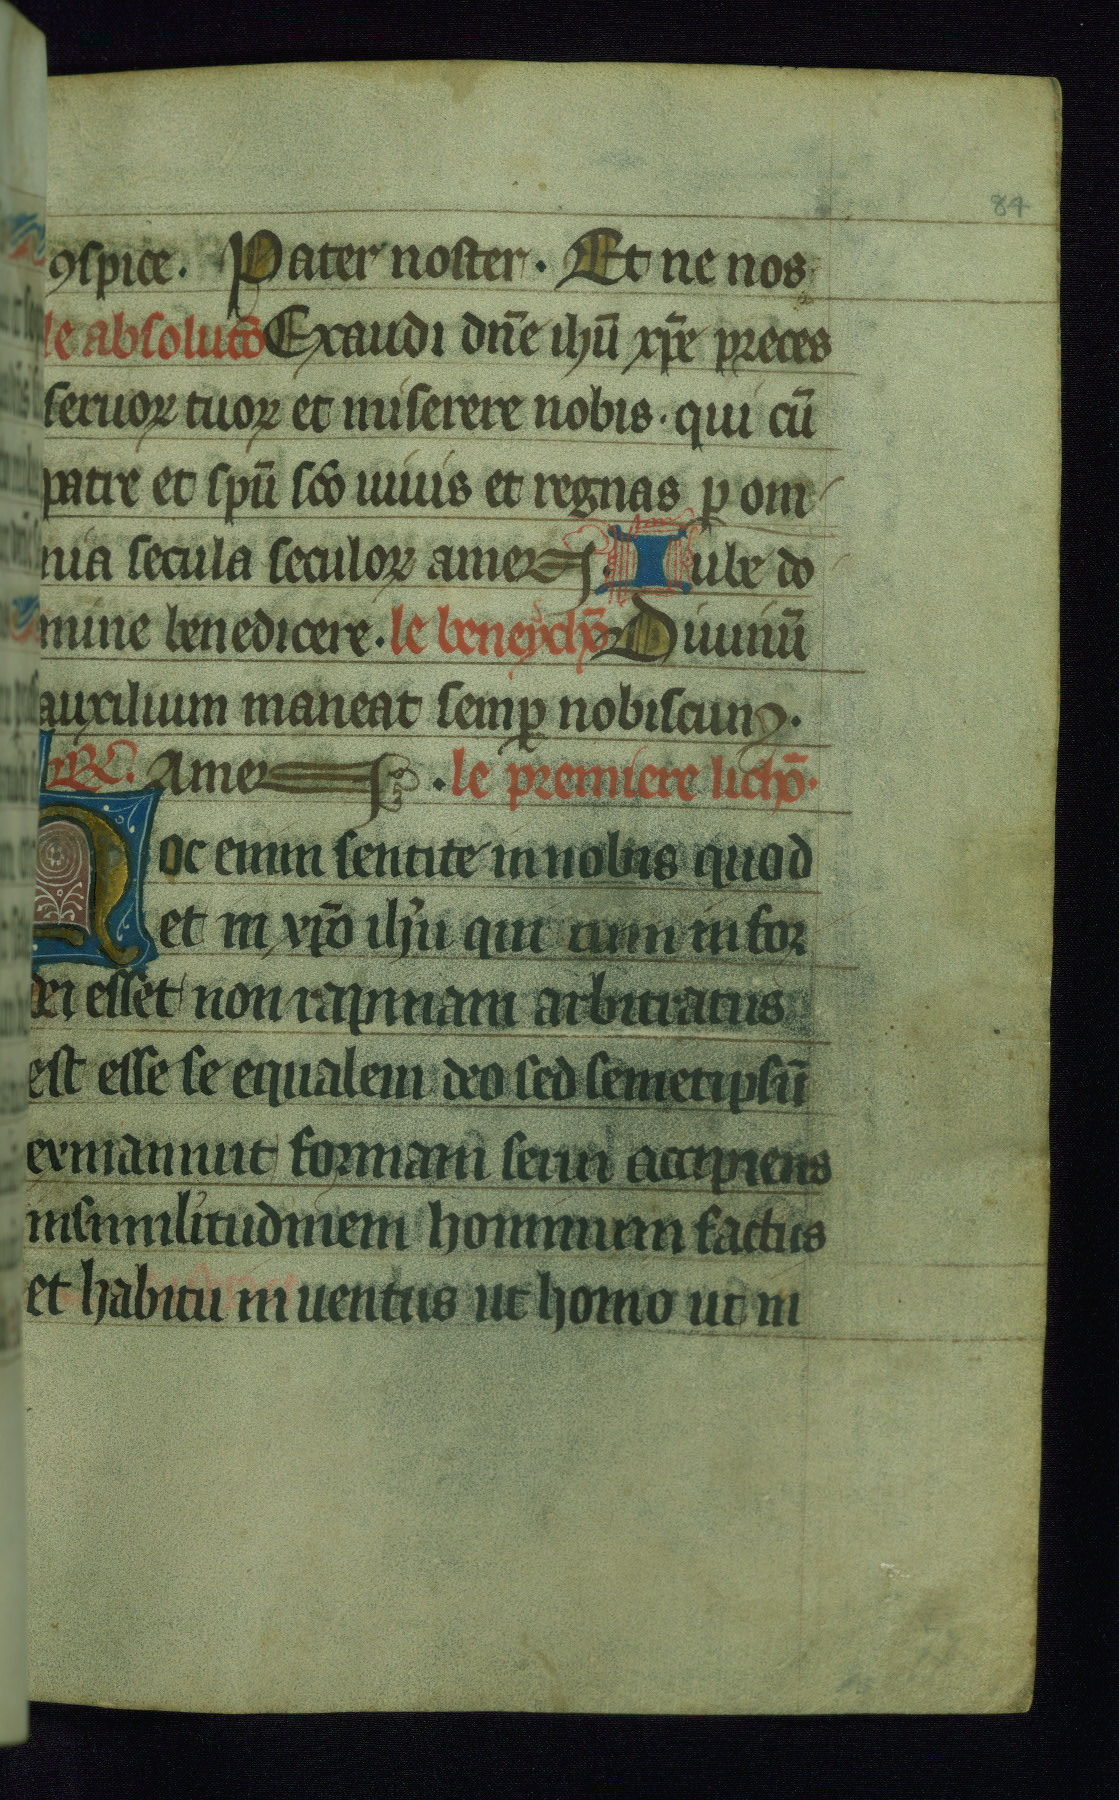 84
ꝯspice. Pater noster. Et ne nos
le absolucō Exaudi dn̄e ihū xp̄e preces
seruoꝝ tuoꝝ et miserere nobis. qui cū
patre et spū scō uiuis et regnas ꝑ om
nia secula seculoꝝ amen. Iube do
mine benedicere. le Diuinū
auxilium maneat semꝑ nobiscum.
℟. Amen. le premiere lichō.
Hoc enim sentite in nobis quod
et in xp̄o ih'u qui cum in for
dei esset non rapinam arbitratus
est esse se equalem deo sed semetipsū
exinaniuit formam serui accipiens
insimilitudinem hominum factus
et habitu inuentus ut homo ut in